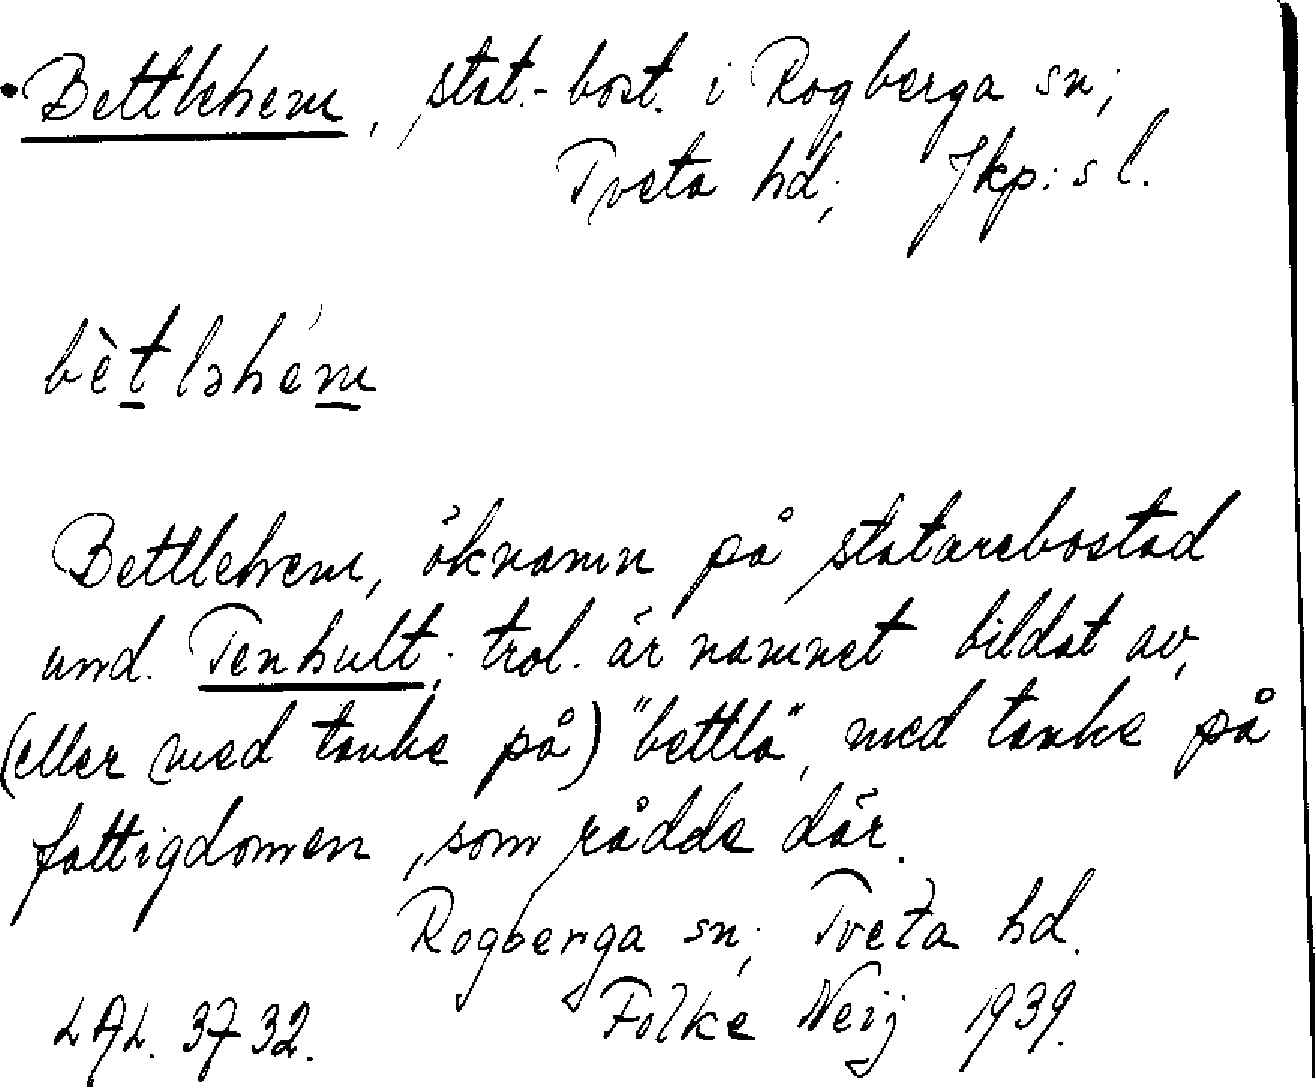 Bettlehem, stat.-bost. i Rogberga sn;
Tveta hd; Jkp:s l.
bètləhém
Bettlehem, öknamn på statarebostad
und. Tenhult; trol. är namnet bildat av,
(eller med tanke på) "bettla", med tanke på
fattigdomen, som rådde där.
Rogberga sn; Tveta hd.
LAL. 3732. Folke Neij 1939.